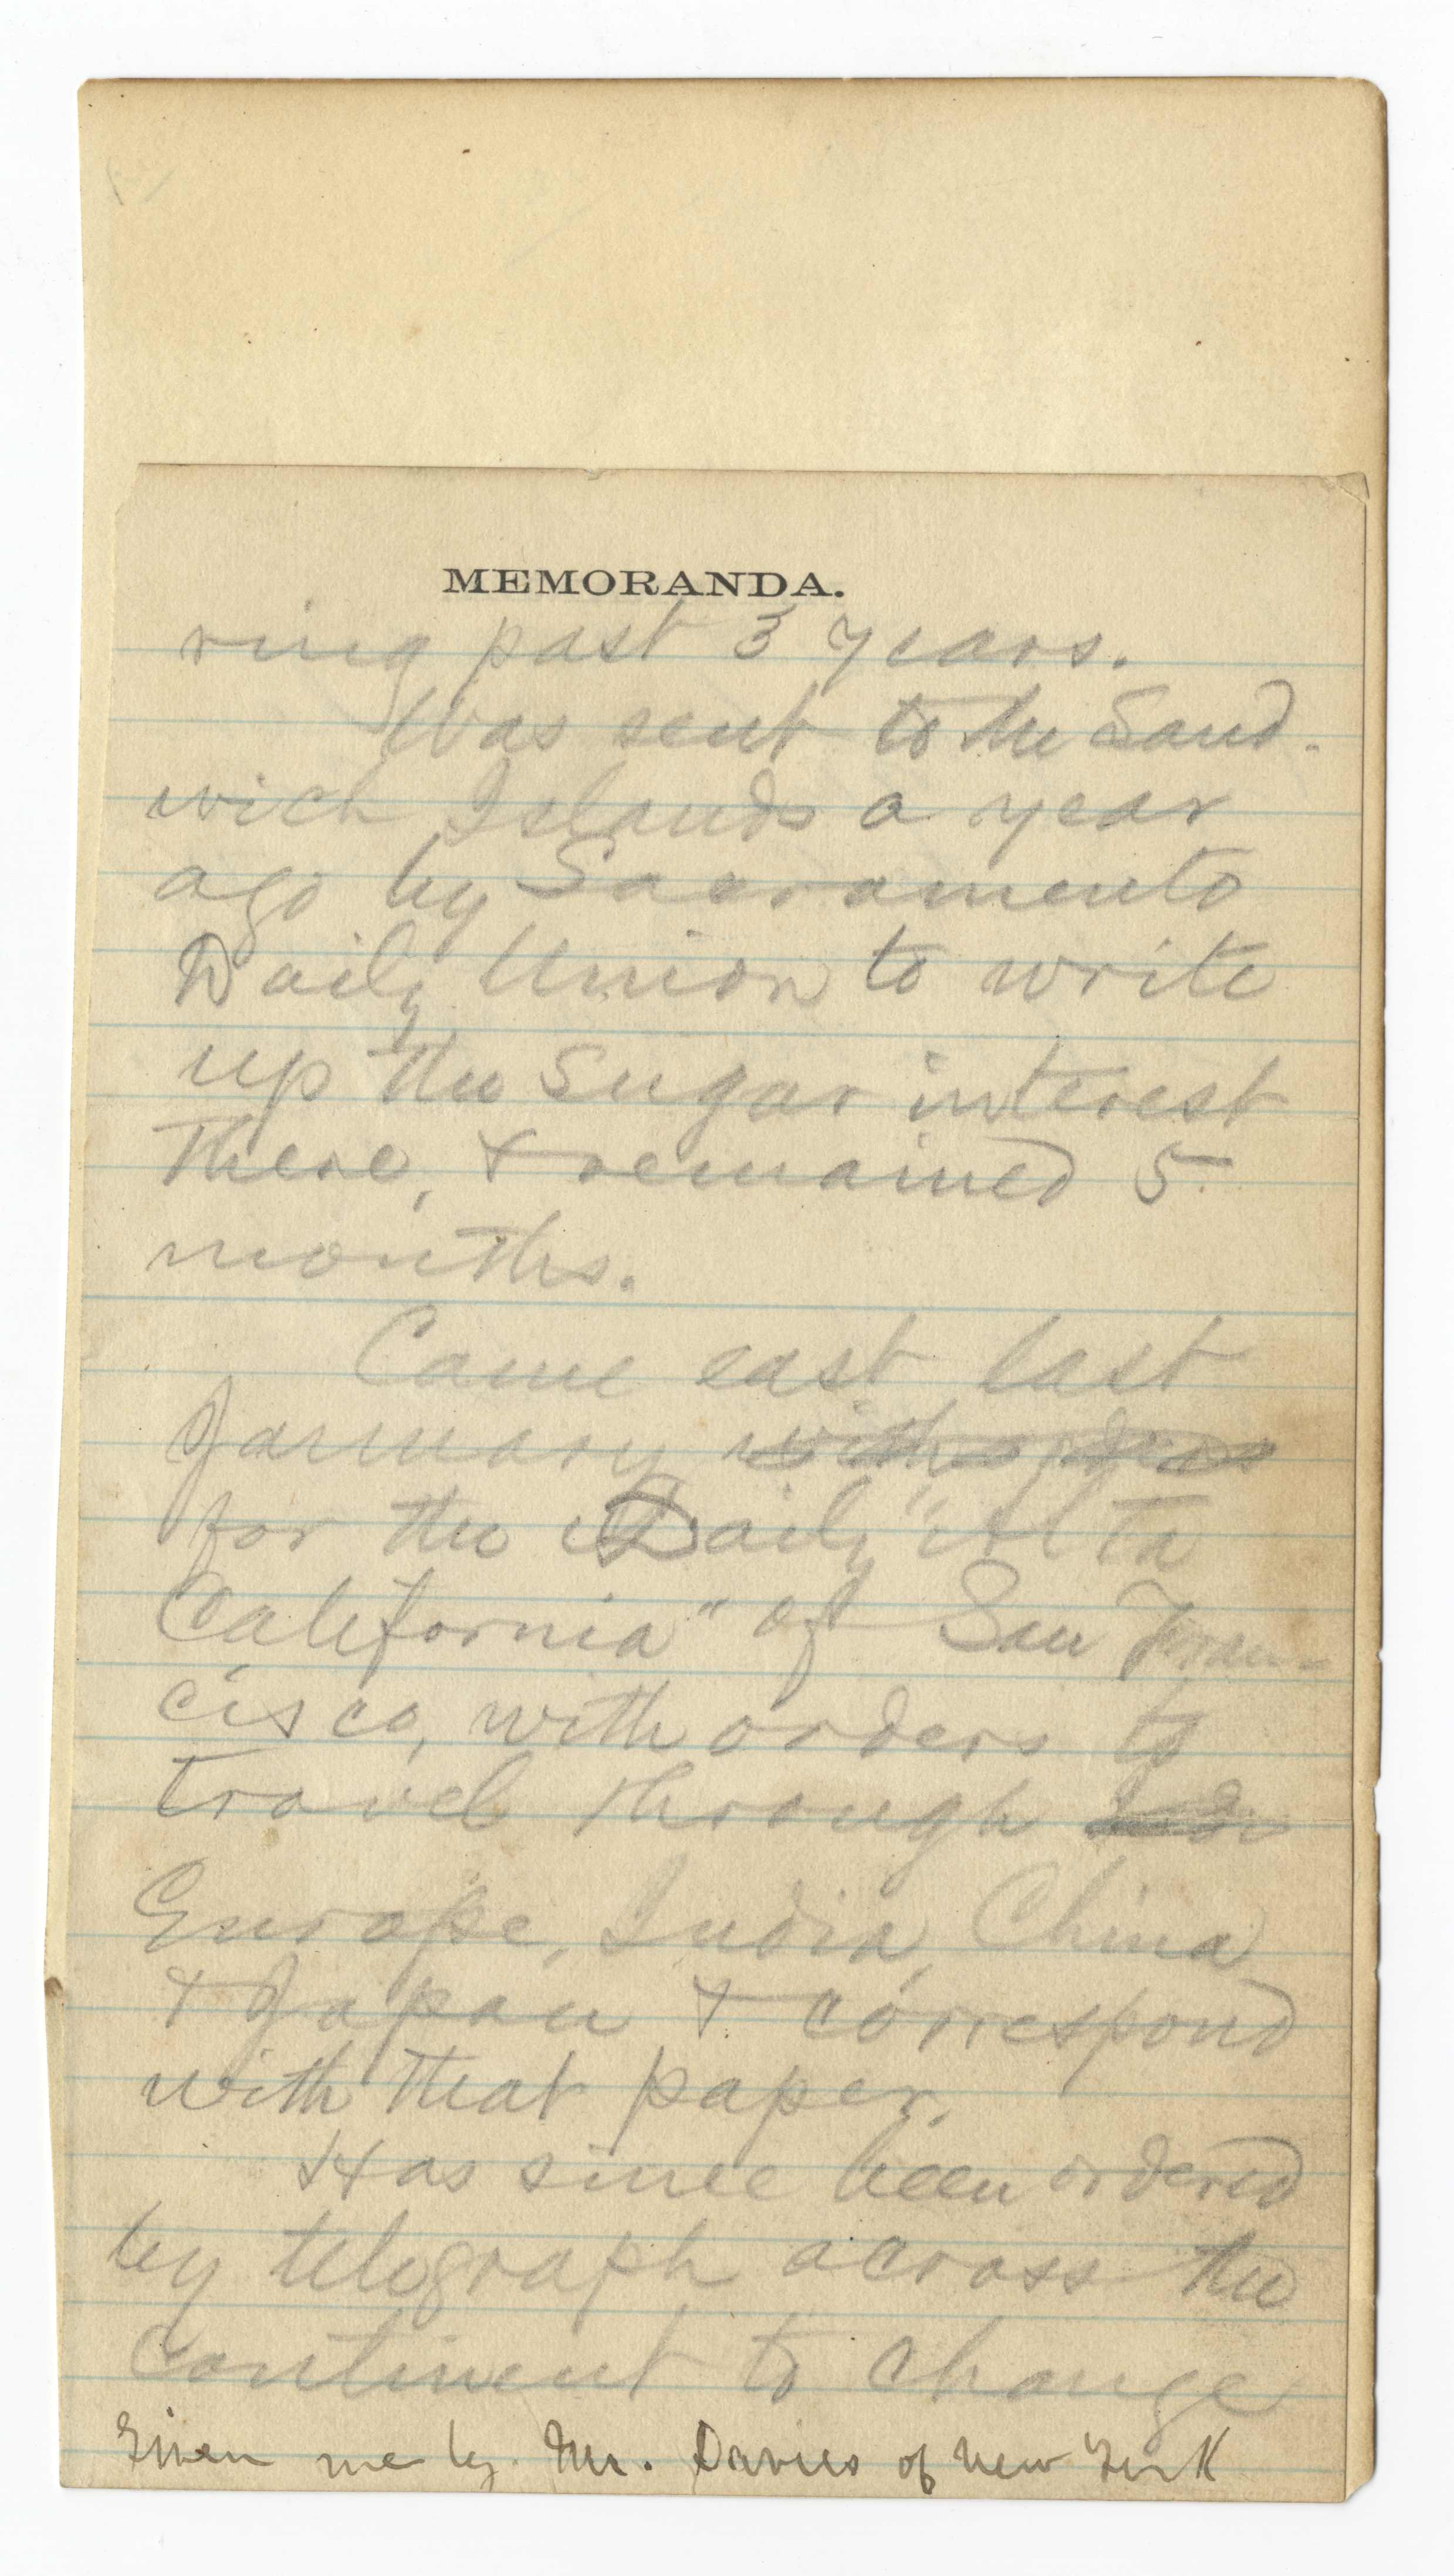 MEMORANDA.
ring past 3 years.
Was sent to the Sand-
wich Islands a year
ago by Sacramento
Daily Union to write
up the Sugar interest
there, & remained 5
months.
Came east last
January with orders
for the Daily "Alta
California" of San Fran-
cisco, with orders to
travel through
Europe, India, China
& Japan & correspond
with that paper.
Has since been ordered
by telegraph across the
continent to change
Given me by Mr. Davies of New York